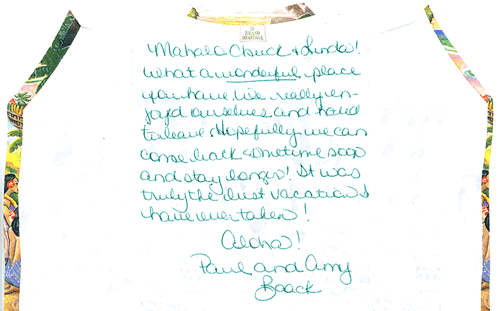 Mahalo Chuck & Linda!
What a wonderful place
you have. We really en-
joyd ourselves and hated
to leave. Hopefully we can
come back sometime soon
and stay longer! It was
truly the best vacation I
have ever taken!
Aloha!
Paul and Amy
Baack